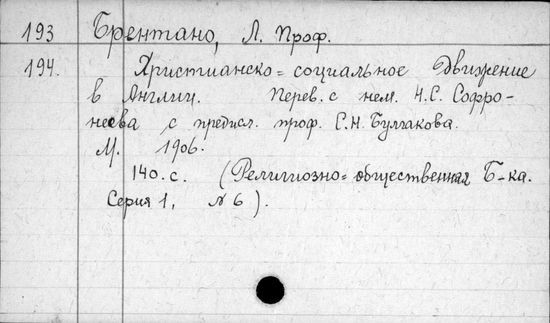 193 Брентано, Л. Проф.
194. Христианско=социальное движение
в Англии. Перев. с нем. Н.С. Софро-
неева с предисл. проф. С.Н. Булгакова.
М. 1906.
140. с. (Религиозно=общественная Б-ка.
Серия 1, № 6).